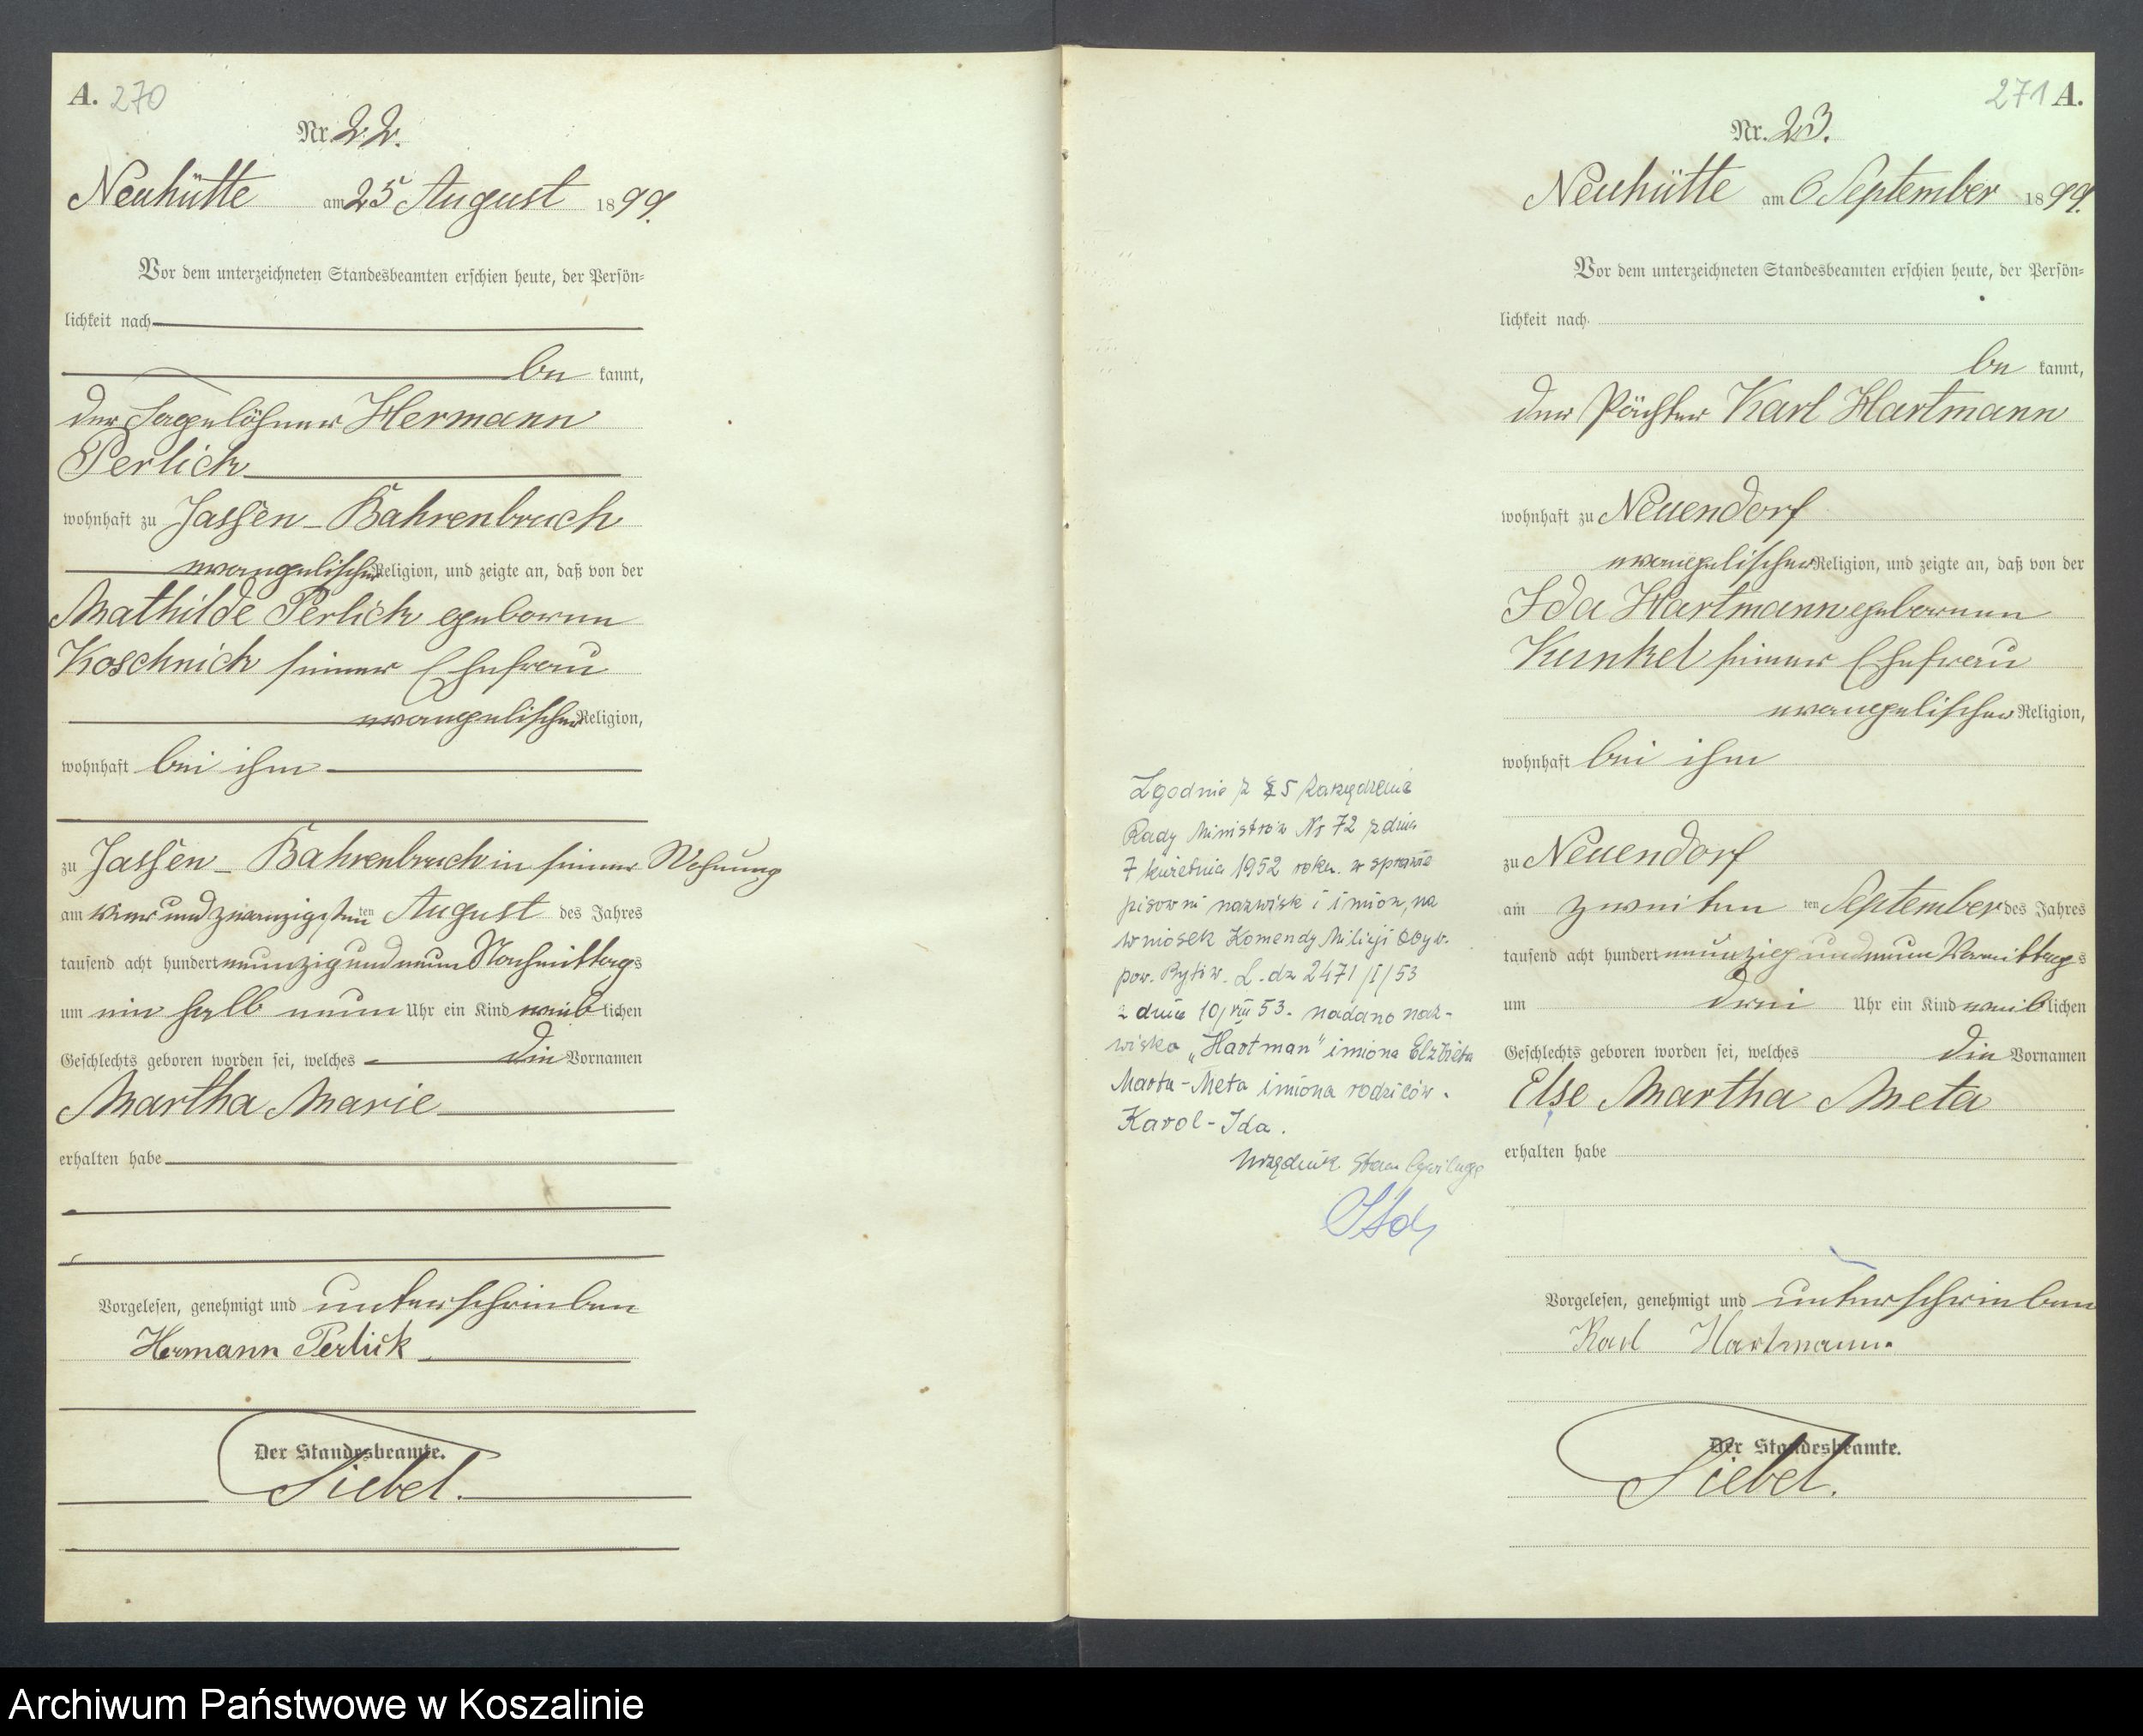 A. 270
Nr. 22.
Neuhütte am 25 August 1899.
Vor dem unterzeichneten Standesbeamten erschien heute, der Persön-
lichkeit nach
be kannt,
der Tagelöhner Hermann
Perlich
wohnhaft zu Jassen-Bahrenbruch
evangelischer Religion, und zeigte an, daß von der
Mathilde Perlich geborenen
Koschnick seiner Ehefrau
evangelischer Religion,
wohnhaft bei ihm
zu Jassen-Bahrenbruch in seiner Wohnung
am vierundzwanzigsten ten August des Jahres
tausend acht hundert neunzig und neun Nachmittags
um ein halb neun Uhr ein Kind weib lichen
Geschlechts geboren worden sei, welches die Vornamen
Martha Marie
erhalten habe
Vorgelesen, genehmigt und unterschrieben
Hermann Perlick
Der Standesbeamte.
Siebel.
271 A.
Nr. 23.
Neuhütte am 6 September 1899.
Vor dem unterzeichneten Standesbeamten erschien heute, der Persön-
lichkeit nach
be kannt,
der Pächter Karl Hartmann
wohnhaft zu Neuendorf
evangelischer Religion, und zeigte an, daß von der
Ida Hartmann geborenen
Kunkel seiner Ehefrau
evangelischer Religion,
wohnhaft bei ihm
zu Neuendorf
am zweiten ten September des Jahres
tausend acht hundert neunzig und neun Vormittags
um drei Uhr ein Kind weib lichen
Geschlechts geboren worden sei, welches die Vornamen
Else Martha Meta
erhalten habe
Vorgelesen, genehmigt und unterschrieben
Karl Hartmann.
Der Standesbeamte.
Siebel.
Zgodnie z § 5 Zarządzenia
Rady Ministrów Nr 72 z dnia
7 kwietnia 1952 roku. w sprawie
pisowni nazwisk i imion, na
wniosek Komendy Milicji Obyw.
pow. Bytów. L. dz 2471/I/53
z dnia 10/VII 53. nadano naz-
wisko „Hartman" imiona Elżbieta
Marta-Meta imiona rodziców.
Karol-Ida.
Urzędnik Stanu Cywilnego
Archiwum Państwowe w Koszalinie